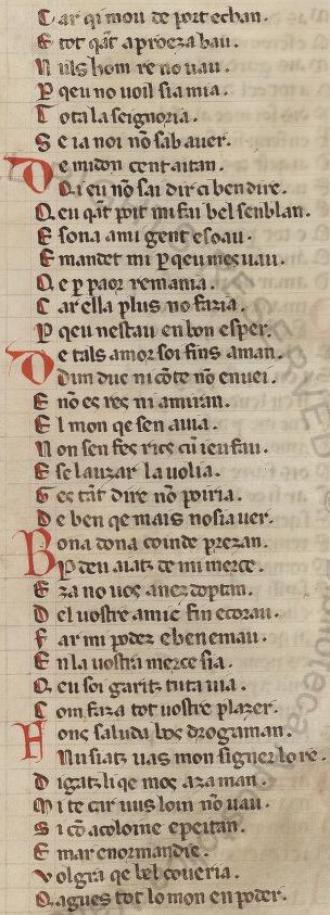 C ar qi mou de port e chan.
E tot qāt a proeza bau.
N uls hom re no uau.
P qeu no uoil sia mia.
T ota la seignoria.
S e ia noi nō sab auer.
D e midon cent aitan.
Q i eu nō sai dir ci ben dire.
Q eu qāt poit mi fai bel senblan.
E sona ami gent e soau.
E mandet mi p qeu mes uau.
Q e p paor remania.
C ar ella plus no faria.
P qeu nestau en bon esper.
D e tals amor soi fins aman.
O dim duc ni cōte nō enuei.
E nō es reg ni amiran.
E l mon qe sen auia.
N on sen fes rics cū ieu fau.
E se lauzar la uolia.
G es tāt dire nō poiria.
D e ben qe mais nosia uer.
B ona dona coinde prezan.
P deu aiatz de mi merce.
E za no uos anez doptan.
D el uostre amic fin e corau.
F ar mi podez e ben e mau.
E n la uostra merce sia.
Q eu soi garitz tuta uia.
C om faza tot uostre plazer.
F ons saluda bos drogaman.
N usiatz uas mon signer lo re.
D igatz li qe mos azaman.
M i te car uus loin nō uau.
S i cō a coloine e peitan.
E mar e normandie.
V olgra qe bel coueria.
Q agues tot lo mon en poder.